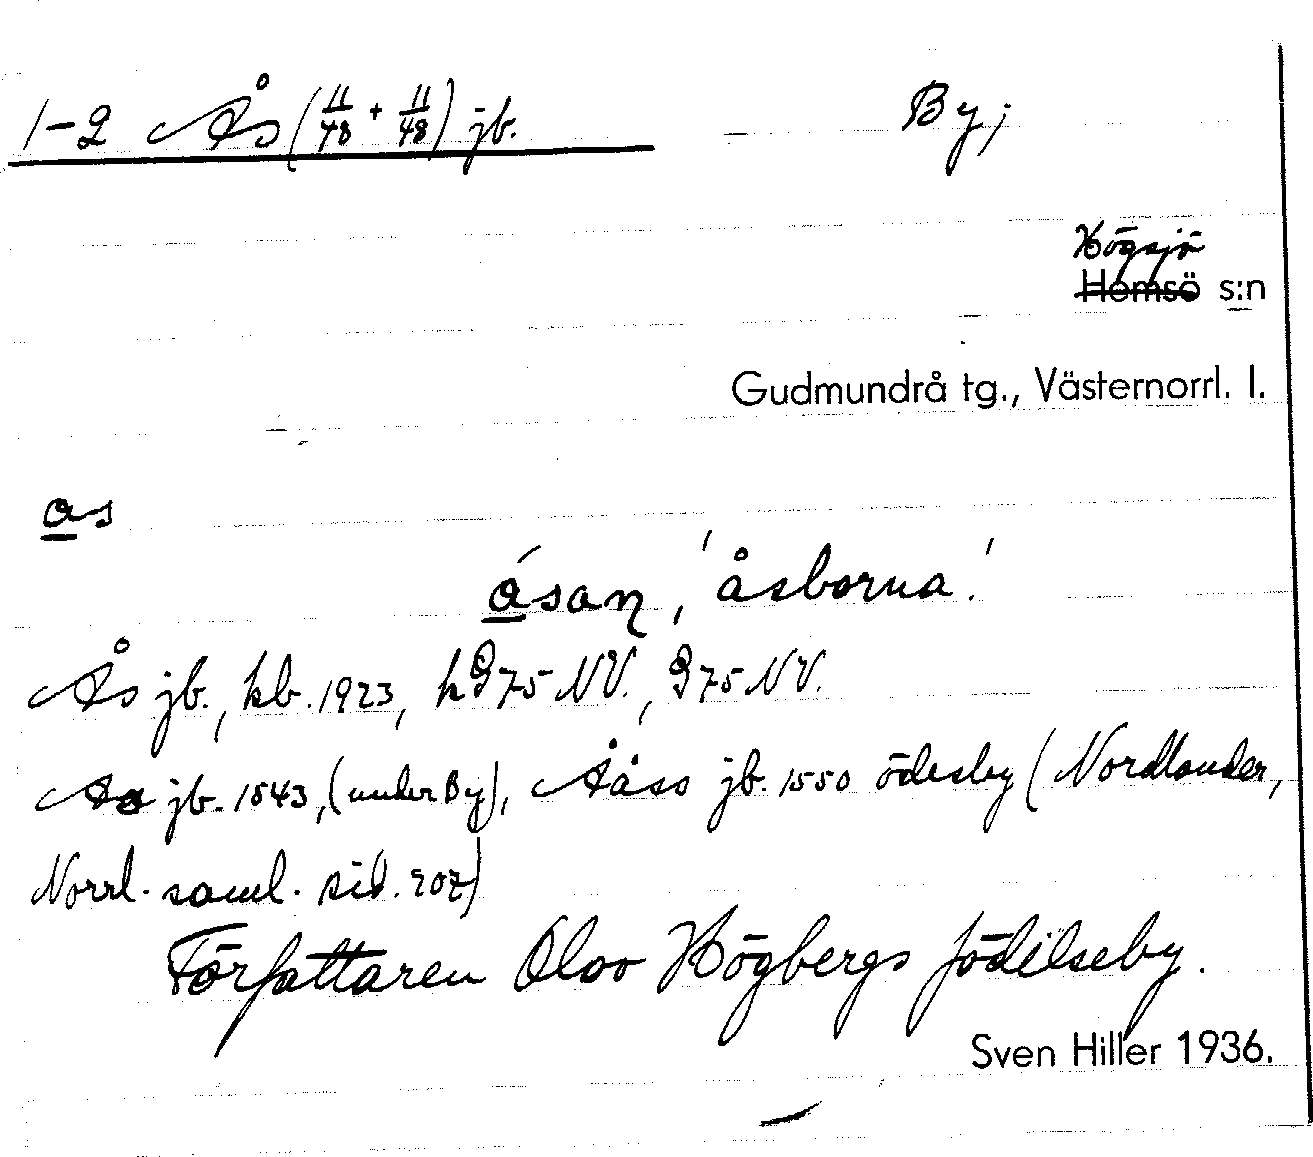 1-2 Ås (11/48 + 11/48) jb. By;
Högsjö
Hemsö s:n
Gudmundrå tg., Västernorrl. l.
as
ásaɳ, 'åsborna'.
Ås jb., kb. 1923, h 975 NV., 975 NV.
As jb. 1543, (under By), Aåss jb. 1550 ödesby (Nordlander,
Norrl. saml. sid. 202)
Författaren Olov Högbergs födelseby.
Sven Hiller 1936.